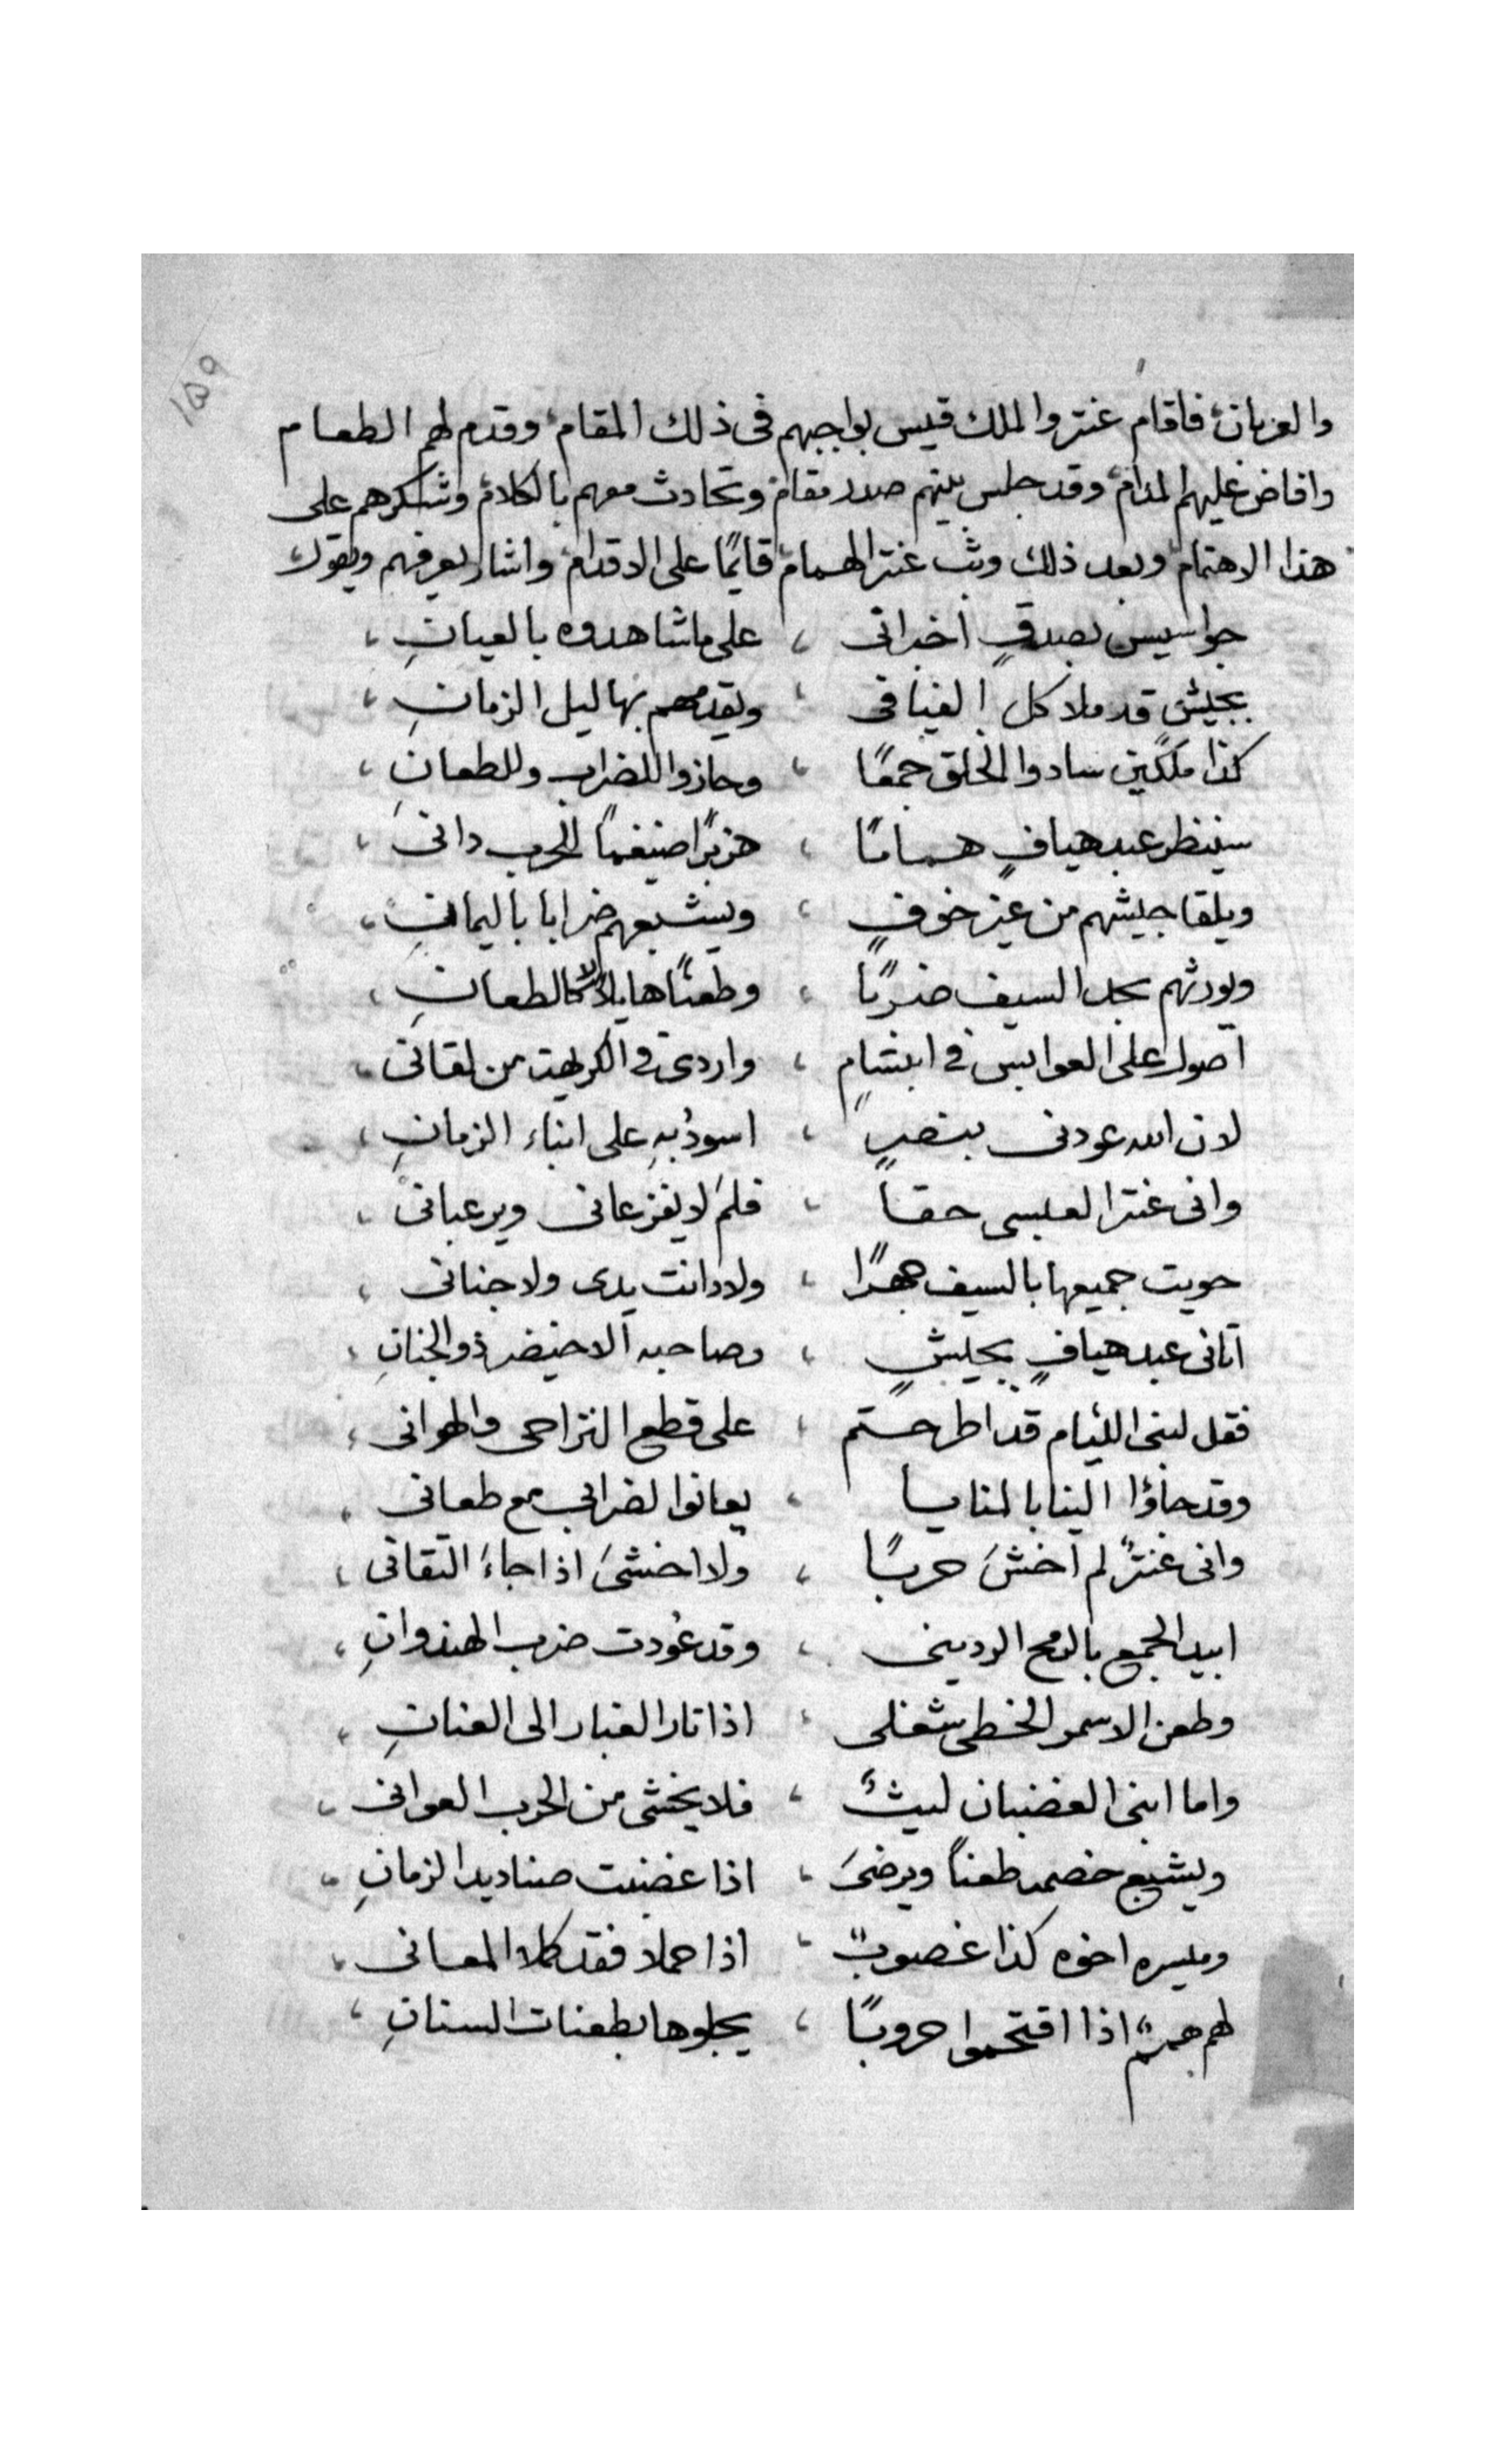 ١٥٩
والعربان فاقام عنتر والملك قيس بواجبهم فى ذلك المقام وقدم لهم الطعام
وافاض عليهم المدام وقد جلس بينهم صدر مقام وتحادث معهم بالكلام وشكرهم على
هذا الاهتمام وبعد ذلك وثب عنتر الهمام قايمًا على الاقدام واشار يعرفهم ويقول
جواسيس بصدقٍ اخبرانى ، على ما شاهدوه بالعيانِ ،
بجيش قد ملا كل الفيافى ، ويقدمهم بهاليل الزمانِ ،
كذا ملكين سادوا الخلق جمعًا ، وحازوا للضراب وللطعانِ ،
سينظر عبد هيافٍ همامًا ، هزبرًا ضيغمًا للحرب دانى ،
ويلقا جيشهم من غير خوفٍ ، ويشبعهم ضرابا باليمانِ ،
ويورثهم بحد السيف ضربًا ، وطعنًا هايلا لا كالطعانِ ،
اصول على العوابس فى ابتسامٍ ، واردى فى الكريهت من لقانى ،
لان الله عودنى بنصرٍ ، اسودُ بهِ على ابناء الزمانِ ،
وانى عنتر العبسى حقاً ، فلم لا يفزعانى ويرعبانى ،
حويت جميعها بالسيف جهرًا ، ولا دانت يدى ولا جنانى ،
اتانى عبد هيافٍ بجيشٍ ، وصاحبه الاخيضر ذو الجنانِ ،
فقل لبنى الليام قد اطرحتم ، على قطع التراحى والهوانى ،
وقد جاؤا الينا بالمنايا ، يعانوا لضرابى مع طعانى ،
وانى عنترٌ لم اخشَ حربًا ، ولا اخشىَ اذا جاءَ التقانى ،
ابيد الجمع بالرمح الردينى ، وقد عُودت ضرب الهندوانِ ،
وطعن الاسمر الخطى شغلى ، اذا ثار الغبار الى العنانِ ،
واما ابنى الغضبان ليثٌ ، فلا يخشى من الحرب العوانى ،
ويشبع خصمه طعناً ويرضىَ ، اذا غضبت صناديد الزمانِ ،
وميسره اخوه كذا غصوبٌ ، اذا حملا فقد كملا المعانى ،
لهم هممٌ اذا اقتحموا حروبًا ، يجلوها بطعنات السنانِ ،